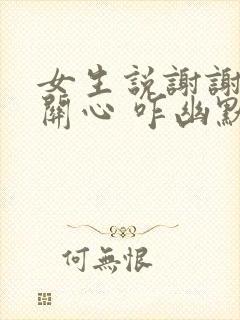 女生説謝謝
關心 咋幽默
何無恨